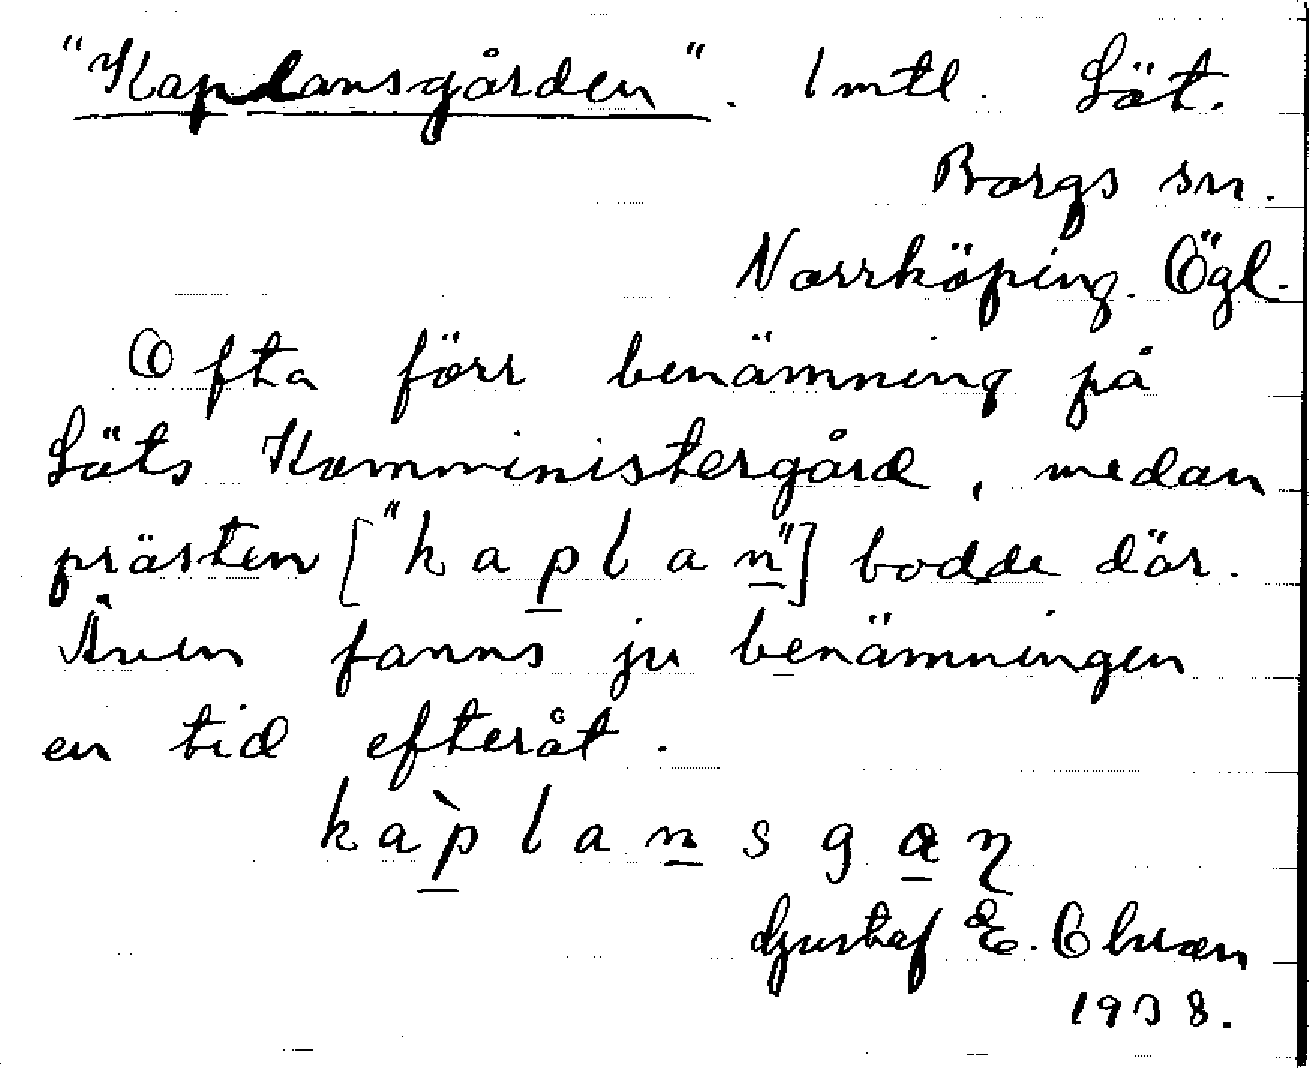 "Kaplansgården". 1 mtl. Löt.
Borgs sn.
Norrköping. Ögl.
Ofta förr benämning på
Löts Komministergård, medan
prästen ["kaplan"] bodde där.
Även fanns ju benämningen
en tid efteråt.
kàplansgaɳ
Gustaf E. Olsson
1938.